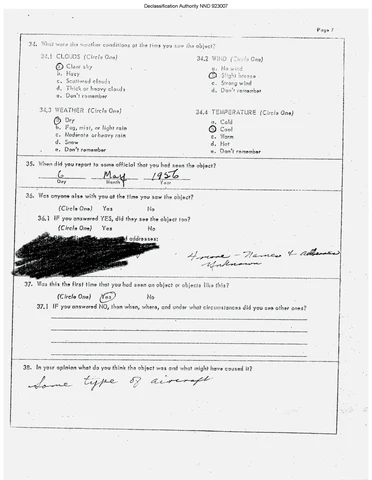 Declassification Authority NND 923007
Page 7
34. What were the weather conditions at the time you saw the object?
34.1 CLOUDS (Circle One)
a. Clear sky
b. Hazy
c. Scattered clouds
d. Thick or heavy clouds
e. Don't remember
34.2 WIND (Circle One)
a. No wind
b. Slight breeze
c. Strong wind
d. Don't remember
34.3 WEATHER (Circle One)
a. Dry
b. Fog, mist, or light rain
c. Moderate or heavy rain
d. Snow
e. Don't remember
34.4 TEMPERATURE (Circle One)
a. Cold
b. Cool
c. Warm
d. Hot
e. Don't remember
35. When did you report to some official that you had seen the object?
6 May 1956
Day Month Year
36. Was anyone else with you at the time you saw the object?
(Circle One) Yes No
36.1 IF you answered YES, did they see the object too?
(Circle One) Yes No
addresses:
4 more - Names & addresses
Unknown
37. Was this the first time that you had seen an object or objects like this?
(Circle One) Yes No
37.1 IF you answered NO, then when, where, and under what circumstances did you see other ones?
38. In your opinion what do you think the object was and what might have caused it?
Some type of aircraft